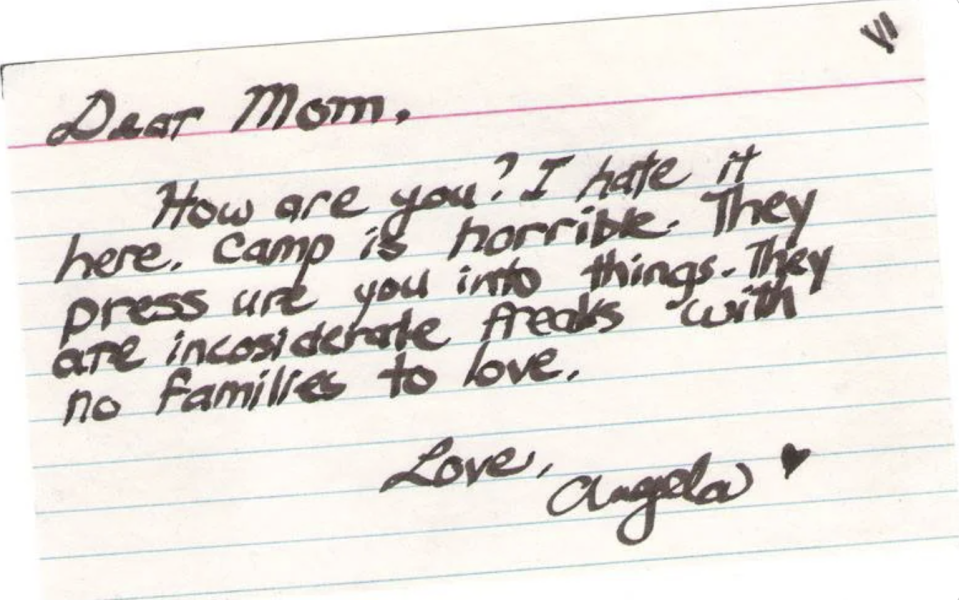 Dear Mom,
How are you? I hate it
here. Camp is horrible. They
press ure you into things. They
are incosiderate freaks with
no families to love.
Love,
Angela ♥